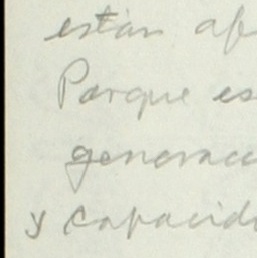 están af
Parque es
generacc
y capacida